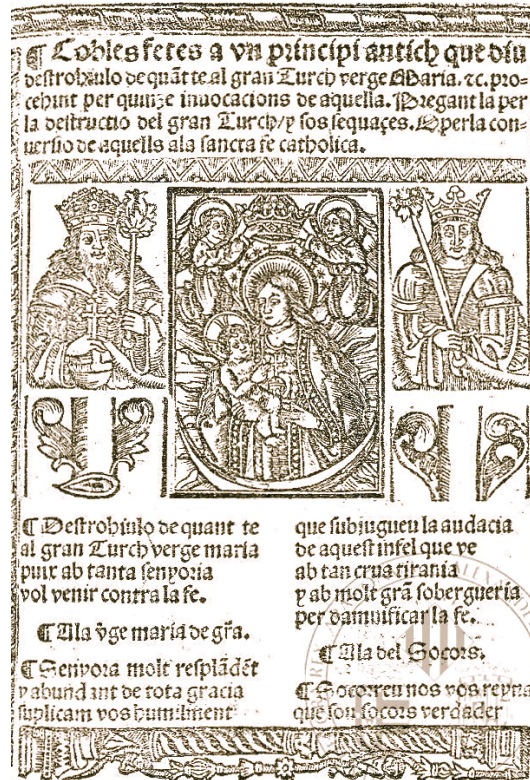 ¶ Cobles fetes a vn principi antich que diu
destrohiulo de quãt te al gran Turch verge Maria. ⁊c. pro-
cehint per quinze inuocacions de aquella. Pregant la per
la destructio del gran Turch/y sos sequaçes. E per la con-
uersio de aquells ala sancta fe catholica.
¶ Destrohiulo de quant te
al gran Turch verge maria
puix ab tanta senyoria
vol venir contra la fe.
¶ Ala v̄ge maria de gr̃a.
¶ Senyora molt resplãdẽt
y abundant de tota gracia
suplicam vos humilment
que subjugueu la audacia
de aquest infel que ve
ab tan crua tirania
y ab molt grã sobergueria
per damnificar la fe.
¶ Ala del Socors.
¶ Socorreu nos vos reyna
que sou socors verdader